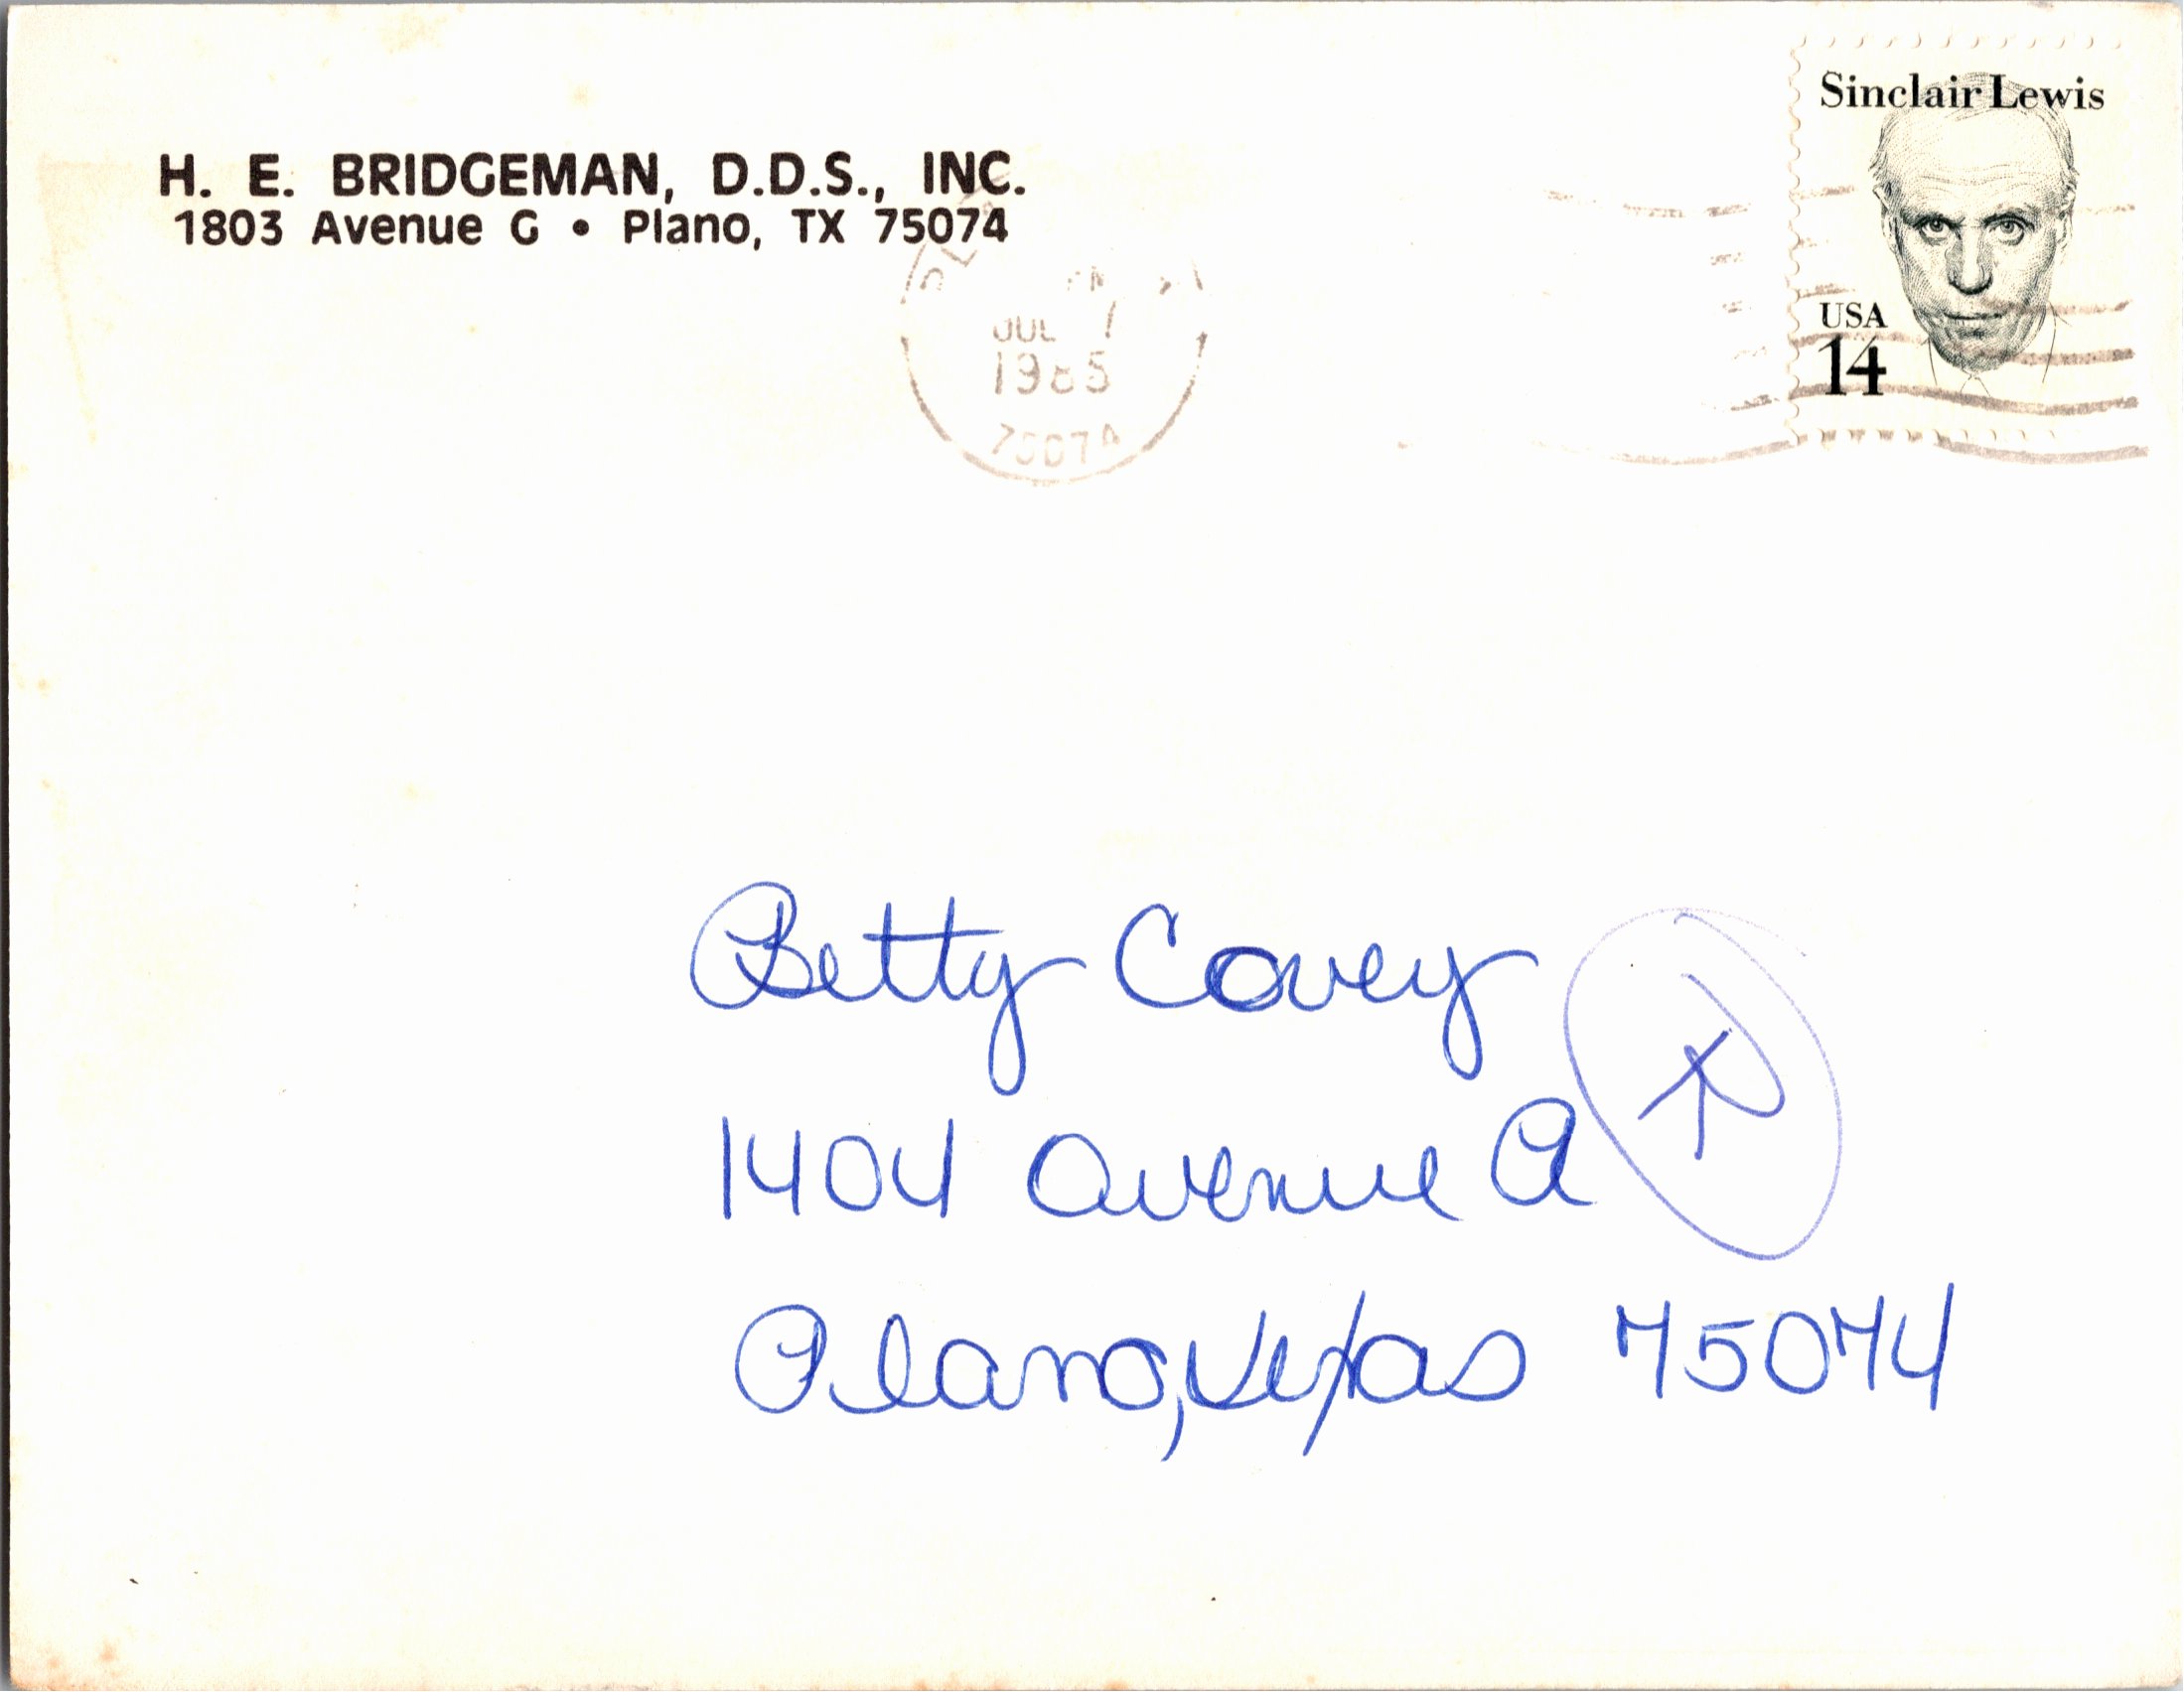 H. E. BRIDGEMAN, D.D.S., INC.
1803 Avenue G • Plano, TX 75074
Sinclair Lewis
USA
14
PM
JUL 1
1985
75074
Betty Covey
1404 Avenue A
Plano, Texas 75074